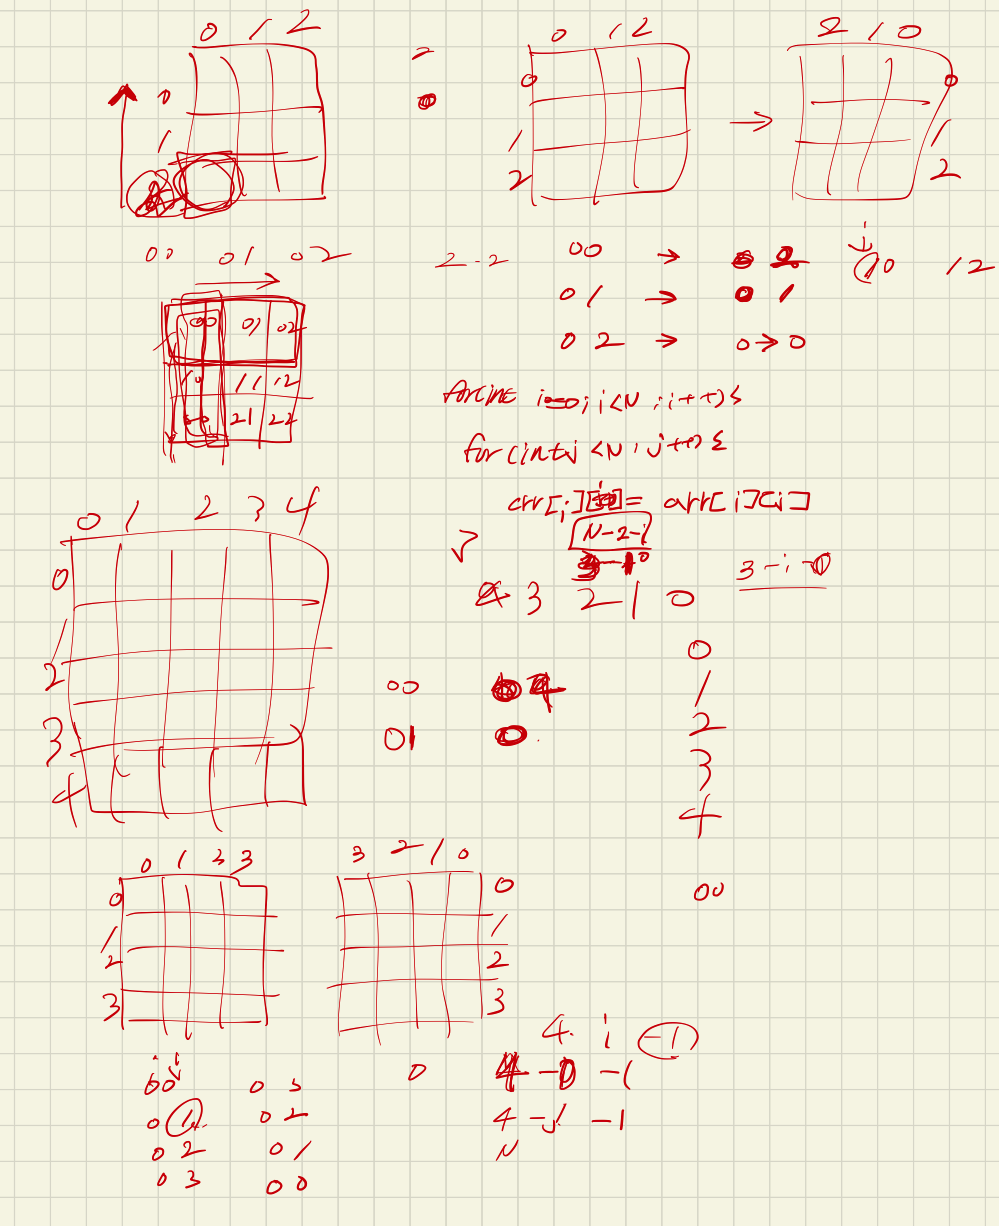 0 1 2
0
1
2
0 1 2
0
1
2
2 1 0
0
1
2
00 01 02
2-2
00 → 0 2
i
10 12
01 → 0 1
02 → 0→0
00 01 02
10 11 12
21 22
for(int i=0; i<N ; i++){
for(int j <N ; j++) {
arr[i][ ]= arr[i][j]
N-2-i
3-i-0
0 1 2 3 4
0
1
2
3
4
4 3 2 1 0
0
1
2
3
4
00 4
01 0
00
0 1 2 3
0
1
2
3
3 2 1 0
0
1
2
3
4. i -1
00 03
0 4 -0 -1
01 02
4 -j -1
02 01
N
03 00